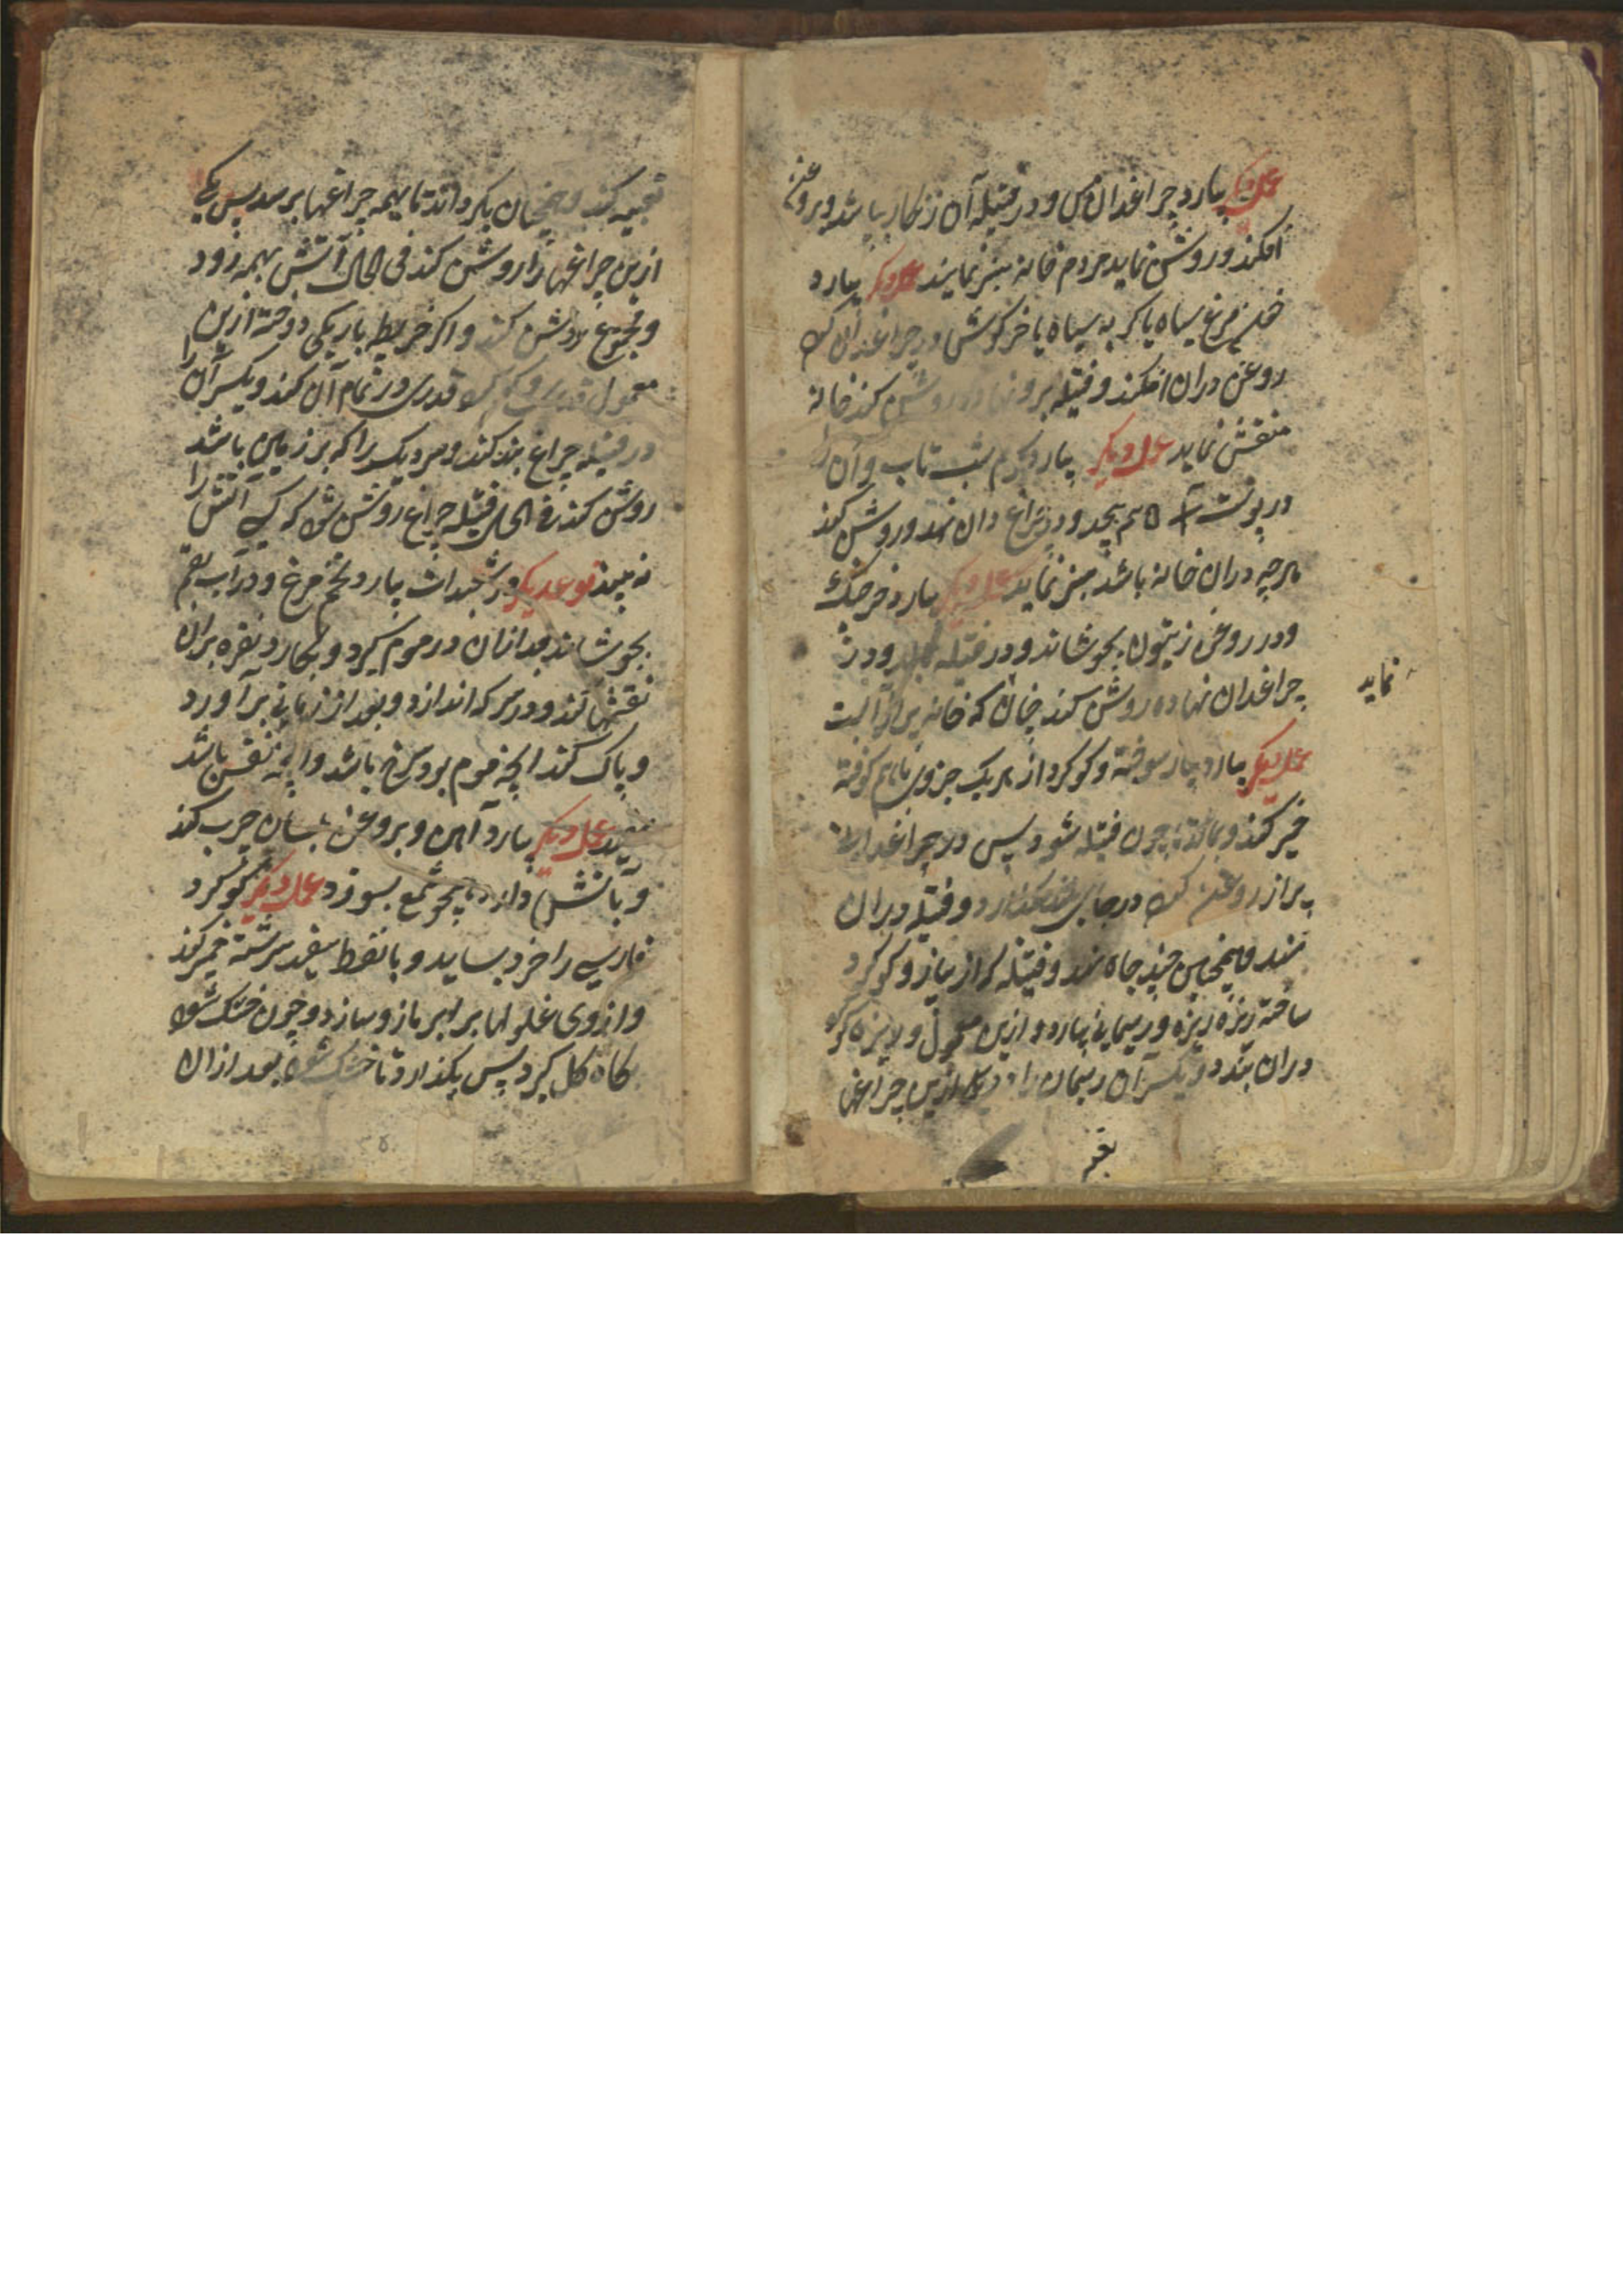 عمل دیکر بیارد چراغدان مس و در فتیله آن زنکار بپاشد و بروغن
افکند و روشن نماید مردم خانه سبز نمایند عمل دیکر بیارد
خون مرغ سیاه یا کربه سیاه یا خرکوش و در چراغدان کند
روغن دران افکند و فتیله برو نهاده روشن کند خانه
منقش نماید عمل دیکر بیارد کرم شب تاب و آن را
در پوست بپیچد و در چراغ دان نهد و روشن کند
هرچه دران خانه باشد سبز نماید عمل دیکر بیارد خرچنک
و در روغن زیتون بجوشاند و در فتیله و در
چراغدان نهاده روشن کند چنان که خانه پر از آب است
نماید
عمل دیکر بیارد پیاز سوخته و کوکرد از هریک جزوی باهم کوفته
خمیر کند و بمالد تا چون فتیله شود پس در چراغدان
پر از روغن کند در جای بلند بکذارد و فتیله دران
نهد و همچنین چند جاه نهد و فتیله که از پیاز و کوکرد
ساخته ریزه ریزه و ریسمانی بیارد و ازین معمول
دران بندد و یکسر آن ریسمان را در یکی ازین چراغها
تعبیه
تعبیه کند و همچنان بکرداند تا بهمه چراغها برسد پس یکی
ازین چراغها را روشن کند فی الحال آتش بهمه رود
و مجموع روشن کند و اکر خریطه باریکی دوخته ازین
معمول قدری در تمام آن کند و یکسر آن را
در فتیله چراغ بند کند و سر دیکر را که بر زمین باشد
روشن کند فی الحال فتیله چراغ روشن شود که کسی آتش را
نه بیند نوعدیکر در شعبدات بیارد تخم مرغ و در آب بقم
بجوشاند بعد ازان در موم کیرد و بکارد نقره بران
نقشها کند و در سرکه اندازد و بعد از زمانی برآورد
و پاک کند آنچه موم برو سرخ باشد و آنچه نقش باشد
سفید عمل دیکر بیارد آهن و بروغن بلسان چرب کند
و بآتش دارد همچو شمع بسوزد عمل دیکر کوکرد
فارسی را خرد بساید و با نفط سفید سرشته خمیر کند
و ازوی غلولها برابر مازو سازد و چون خشک شود
بکاه کل کیرد پس بکذارد تا خشک شود بعد ازان